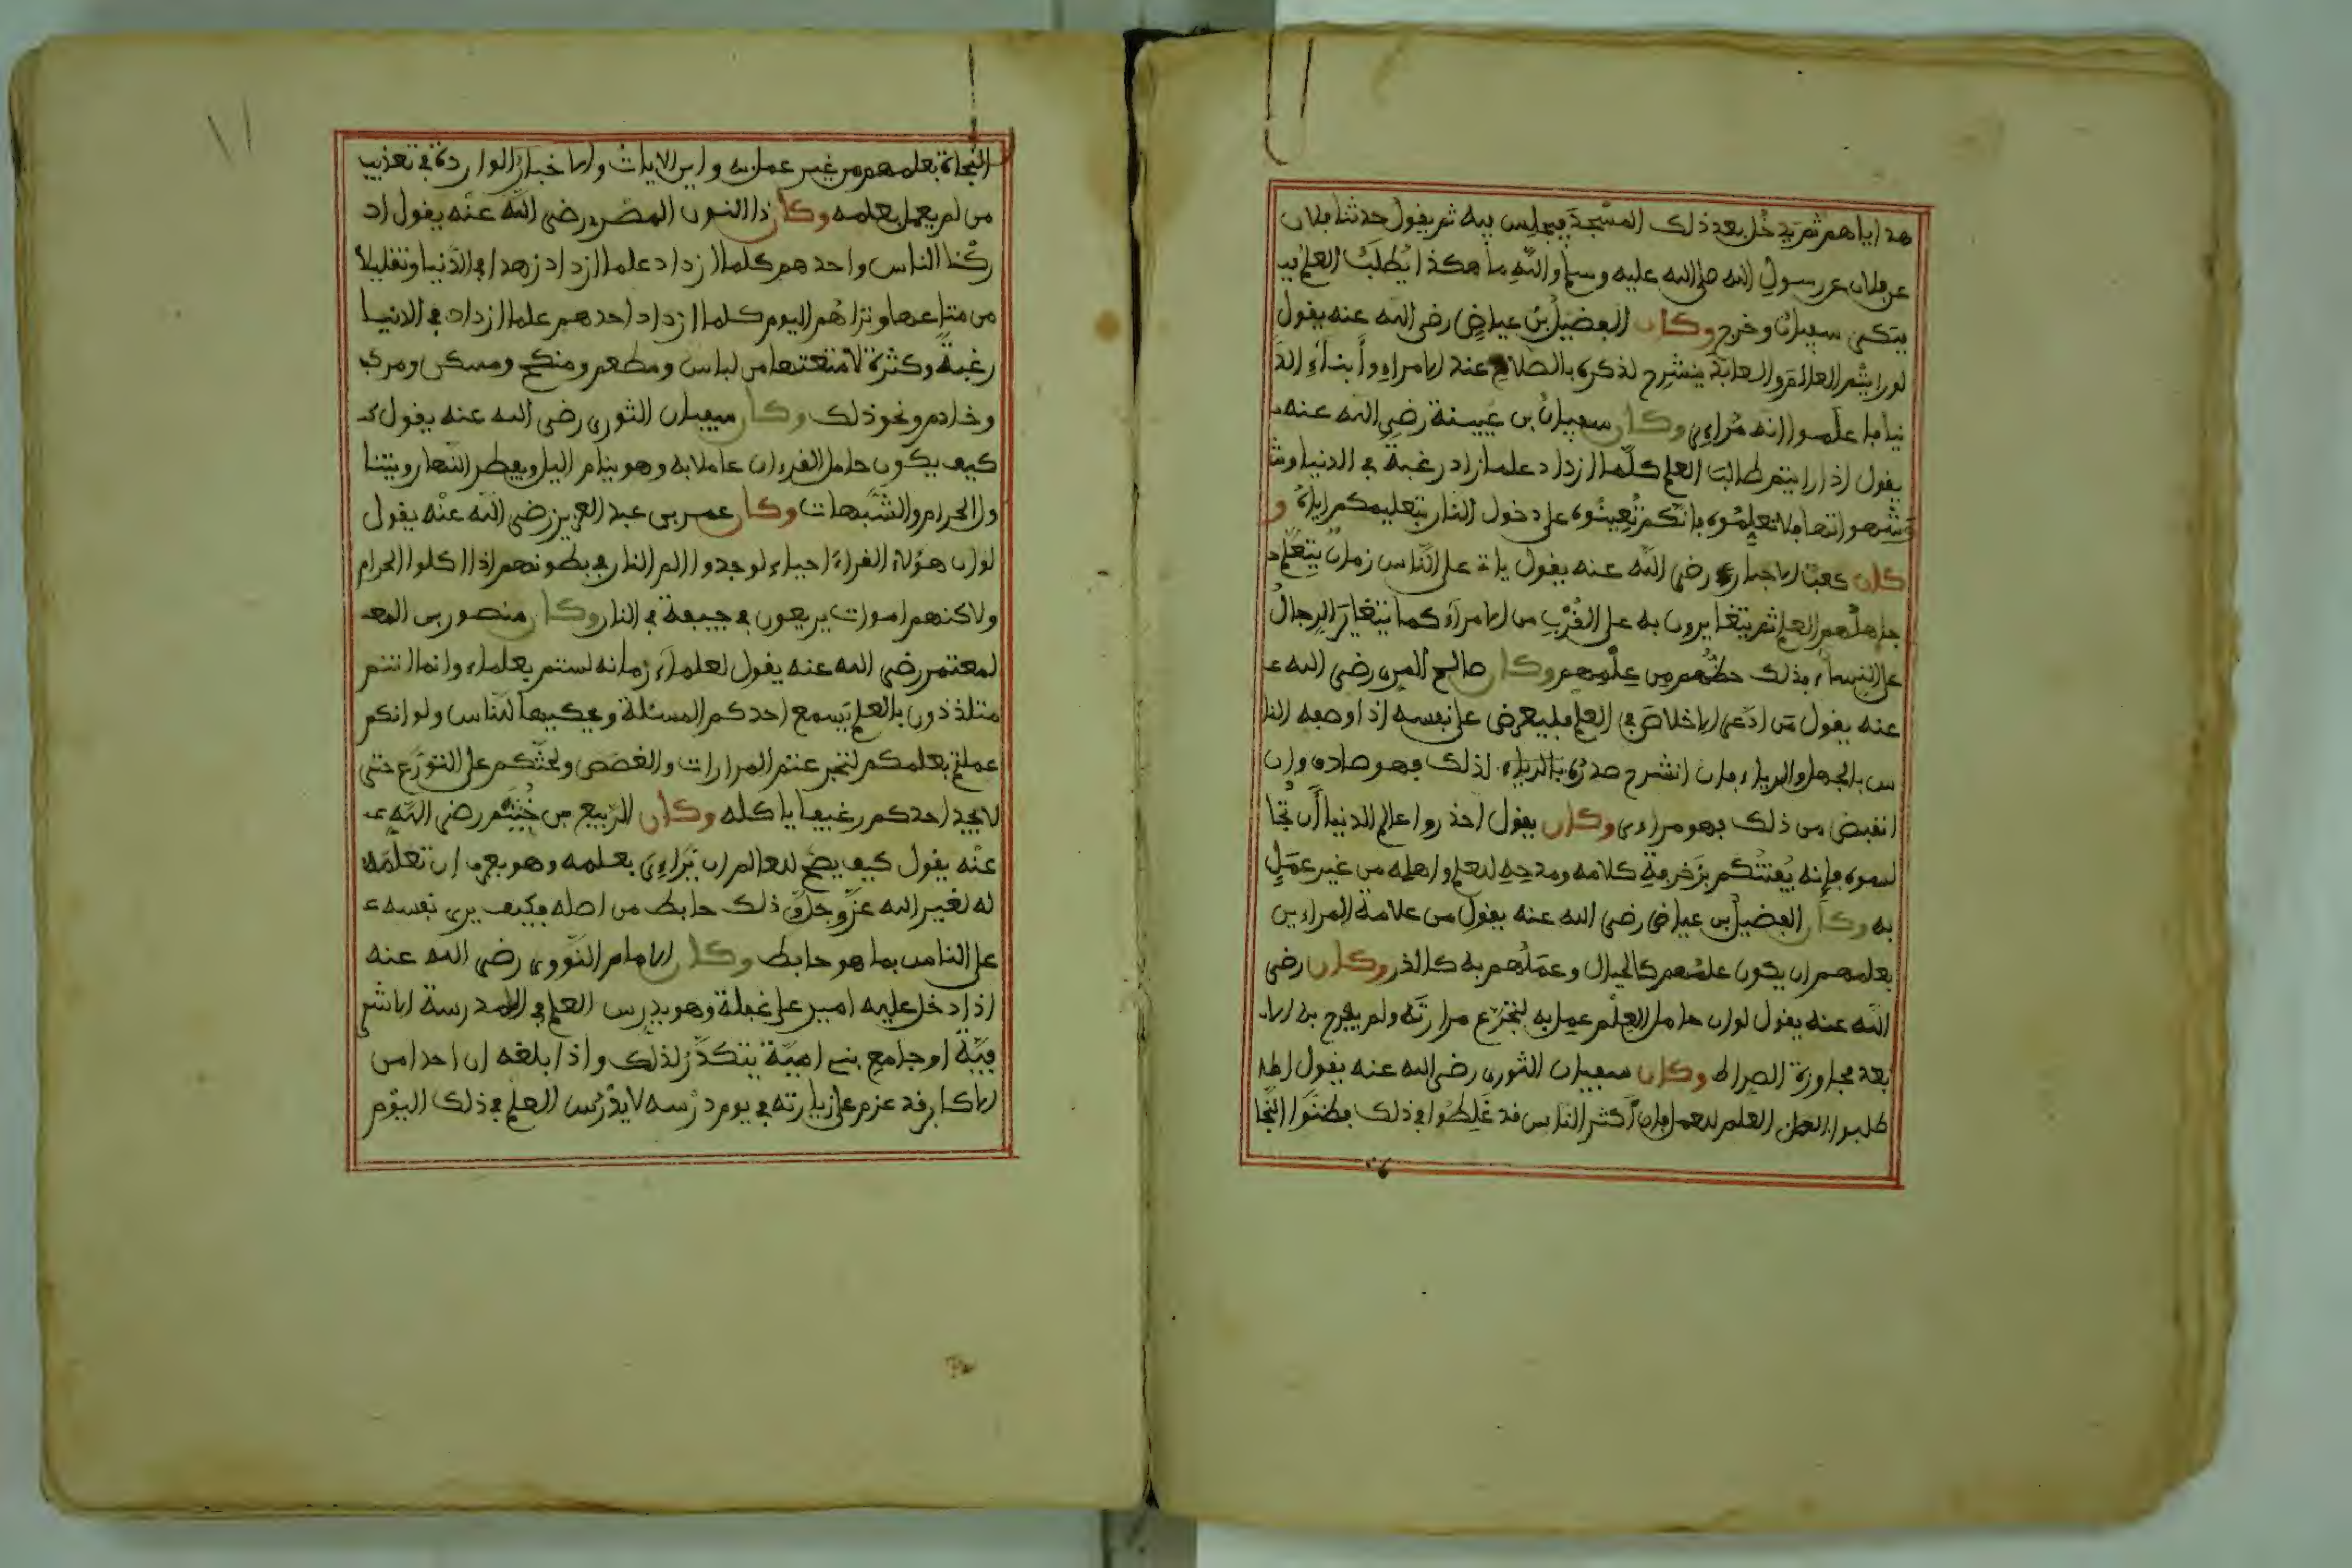 هدايا هم ثم يدخل بعد ذلك المسجد فيجلس فيه ثم يقول حدثنا فلان
عن فلان عن رسول الله صلى الله عليه وسلم والله ما هكذا يُطلَبُ العلم فبـ
يتكى سفيان وخرج وكان الفضيل بن عياض رضي الله عنه يقول
لو رايتم العالم والعابد ينشرح لذكره بالصلاح عند الامراء وأبناء الد
نيا فاعلموا انه مُراءى وكان سفيان بن عيينة رضي الله عنه
يقول اذا رايتم طالب العلم كلّما ازداد علما زاد رغبة في الدنيا وش
وشهواتها فلا تعلموه فانكم تُعينُوه على دخول النار بتعليمكم اياهُ و
كان كعب الاحبار رضي الله عنه يقول يات على النّاس زمان يتعلم
جاهلهم العلم ثم يتغايرون به على القُرْبِ من الامراء كما يتغاير الرجالُ
على النساء فذلك حظّهم من علمهم وكان صالح المرى رضي الله عـ
عنه يقول من ادّعى الاخلاص في العلم فليعرض على نفسه اذا وصفه النا
س بالجهل والرياء فان انشرح صدرُه بالرياء لذلك فهو صادق وان
انقبض من ذلك فهو مراءى وكان يقول احذروا عالم الدنيا أن تجا
لسوه فإنه يُفتنُكم بزَخرفةِ كلامه ومدحِهِ للعلم واهله من غير عَمَلٍ
به وكان الفضيل بن عياض رضي الله عنه يقول من علامة المراءين
بعلمهم ان يكون علمُهم كالجبال وعمَلُهم به كالذر وكان رضي
الله عنه يقول لو ان حامل العِلْم عمِل به لتجرّع مرارتَه ولم يفرح به الا
بعد مجاوزة الصراط وكان سفيان الثورى رضي الله عنه يقول اطـ
طلبوا العلم للعمل فان أكثر الناس قد غَلِطُوا في ذلك فظنّوا النّجا
النجاة بعلمهم من غير عمل به واين الايات والاخبار الواردة في تعذيب
من لم يعمل بعلمه وكان ذا النون المصرى رضي الله عنه يقول اد
ركنا الناس واحدهم كلما ازداد علما ازداد زهدا في الدّنيا وتقليلا
من متاعها ونراهُم اليوم كلما ازداد احدهم علما ازداد في الدنيا
رغبةً وكثرة لامتعتها من لباس ومطعم ومنكح ومسكن ومركب
وخادم ونحو ذلك وكان سفيان الثورى رضي الله عنه يقول كـ
كيف يكون حامل القرءان عاملا به وهو ينام اليل ويفطر النّهار ويتنا
ول الحرام والشّبهات وكان عمر بن عبد العزيز رضي الله عنه يقول
لو ان هؤلاء القراء احياء لوجدوا الم النار في بطونهم اذا اكلوا الحرام
ولاكنهم اموات يرتعون في جيفة في النار وكان منصور بن المعـ
لمعتمر رضي الله عنه يقول لعلماء زمانه لستم بعلماء وانما انتم
متلذذون بالعلم يسمع احدكم المسئلة ويحكيها للناس ولو انكم
عملتم بعلمكم لتجرعتم المرارات والغصص ولحثّكم على التورّع حتى
لا يجد احدكم رغيفا ياكله وكان الرّبيع بن خُثيْم رضي الله عـ
عنْه يقول كيف يصح للعالم ان يُراءِيَ بعلمه وهو يعرف ان تعلّمَه
له لغير الله عزّ وجلّ وذلك حابط من اصله فكيف يرى نفسه عـ
على الناس بما هو حابط وكان الامام النّووى رضي الله عنه
اذا دخل عليه امير على غفلة وهو يدرس العلم في المدرسة الاشر
فيّة او جامع بني اميّة يتكدّر لذلك واذا بلغه ان احدا من
الاكابر قد عزم على زيارته في يوم درْسه لا يدْرُس العلم في ذلك اليوم